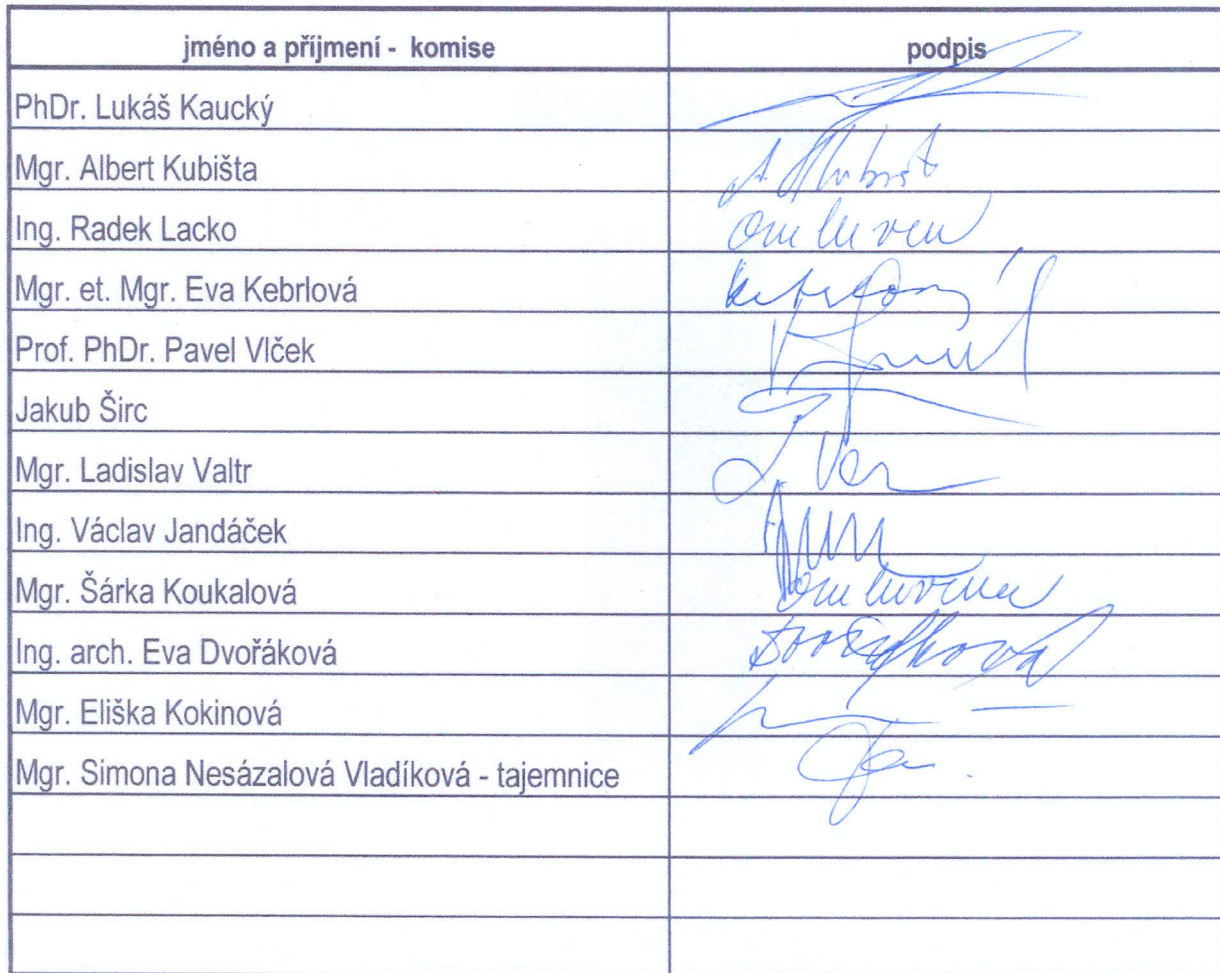 jméno a příjmení - komise podpis
PhDr. Lukáš Kaucký
Mgr. Albert Kubišta
Ing. Radek Lacko omluven
Mgr. et. Mgr. Eva Kebrlová
Prof. PhDr. Pavel Vlček
Jakub Širc
Mgr. Ladislav Valtr
Ing. Václav Jandáček
Mgr. Šárka Koukalová omluvena
Ing. arch. Eva Dvořáková Dvořáková
Mgr. Eliška Kokinová
Mgr. Simona Nesázalová Vladíková - tajemnice